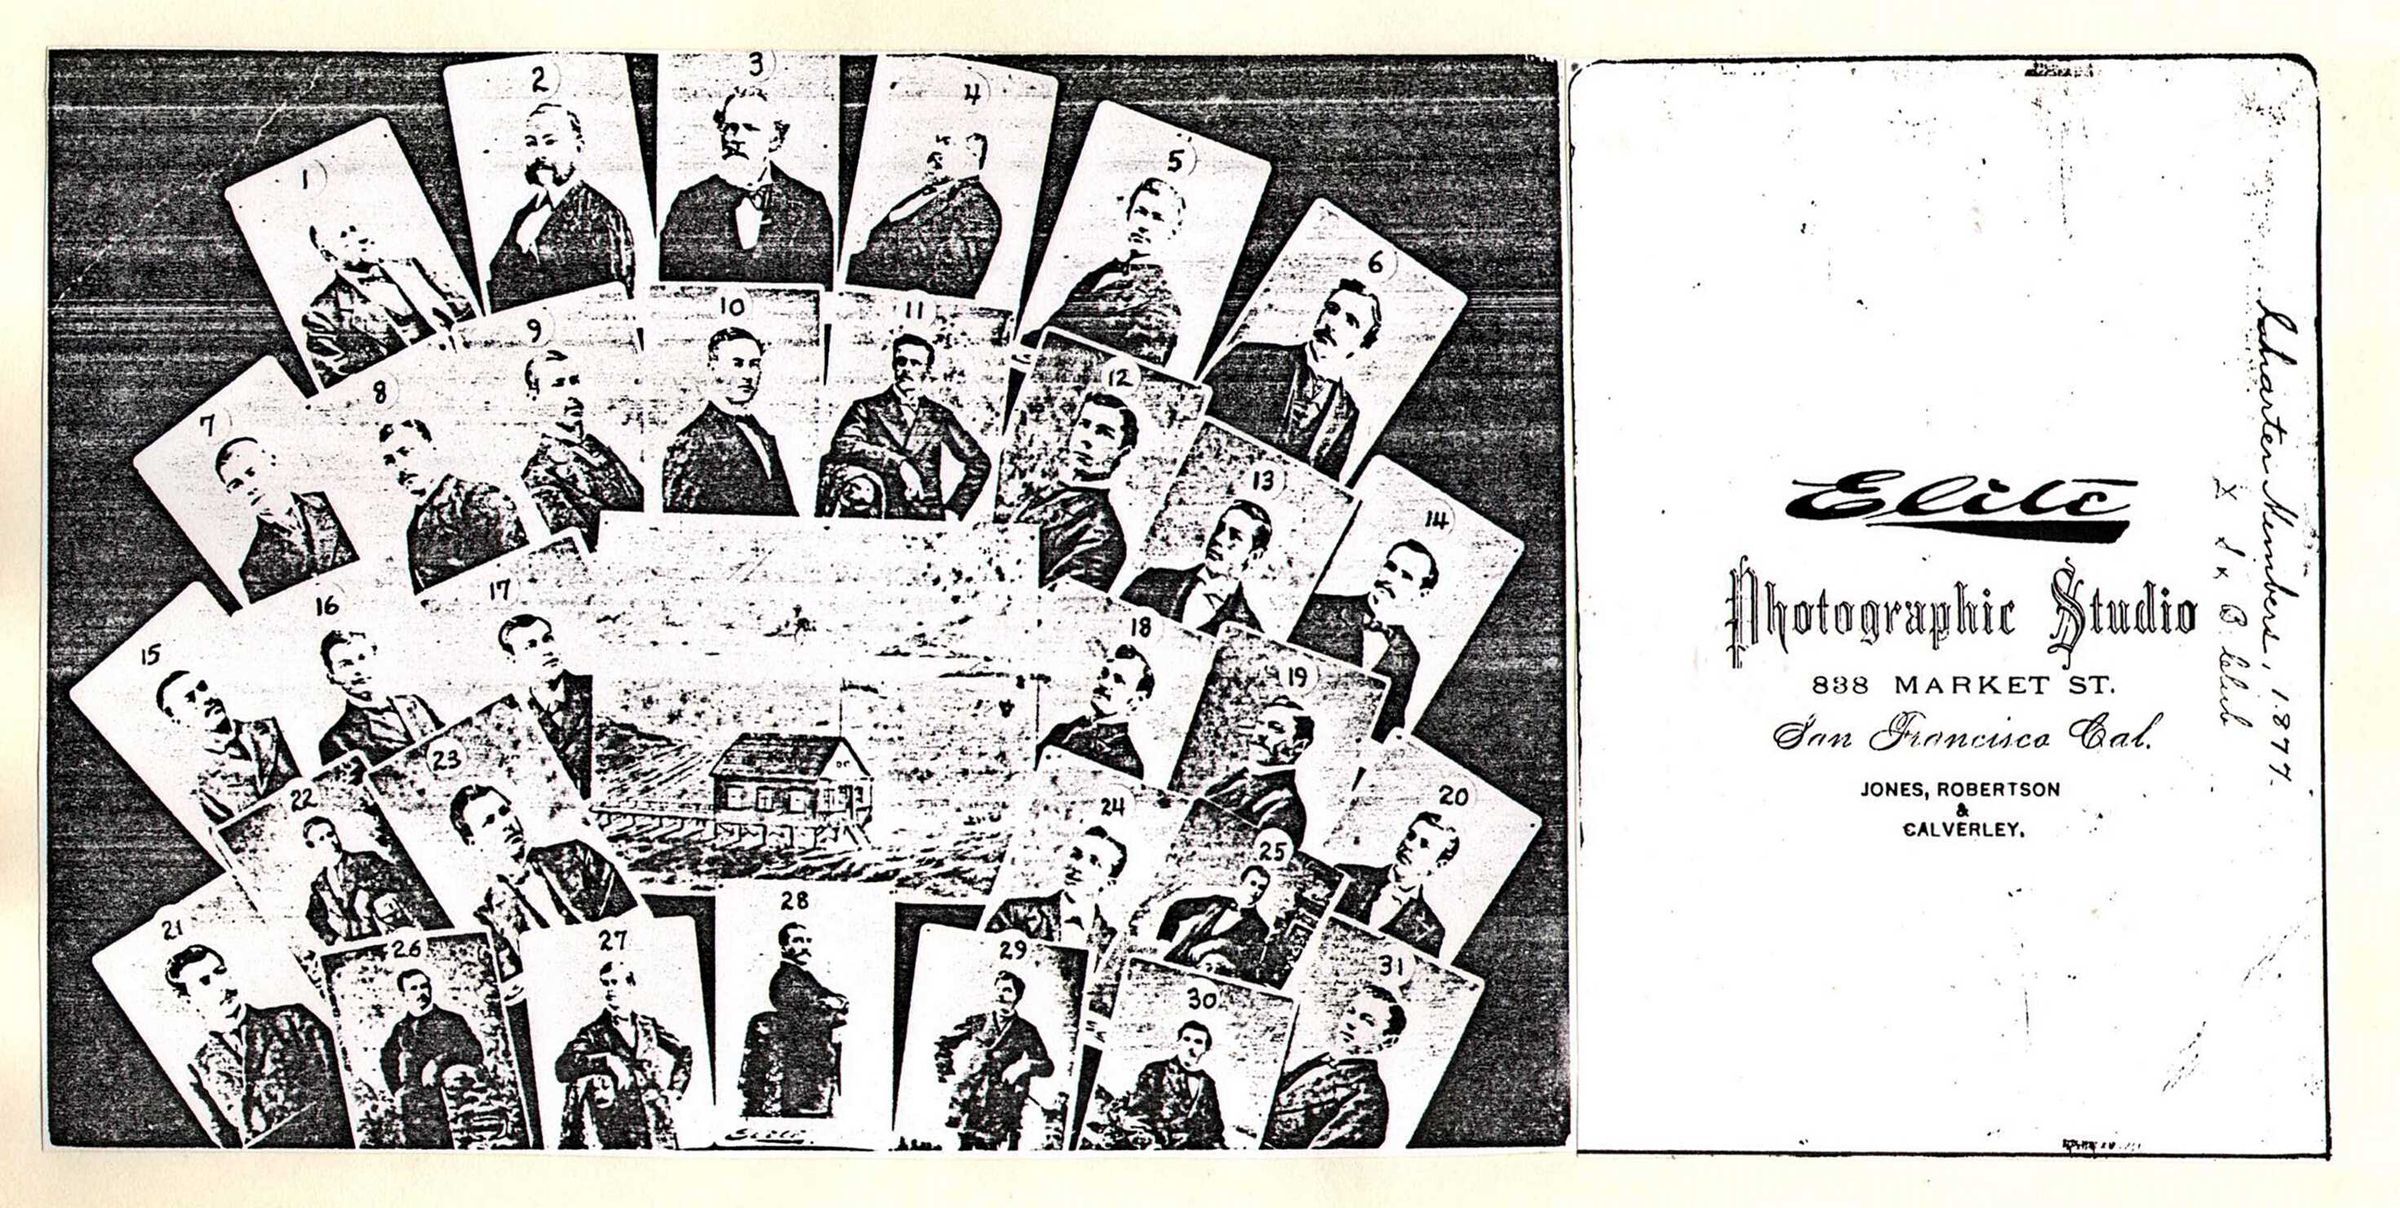 1
2
3
4
5
6
7
8
9
10
11
12
13
14
15
16
17
18
19
20
21
22
23
24
25
26
27
28
29
30
31
Elite
Elite
Photographic Studio
838 MARKET ST.
San Francisco Cal.
JONES, ROBERTSON
&
CALVERLEY.
Charter Members, 1877.
Club